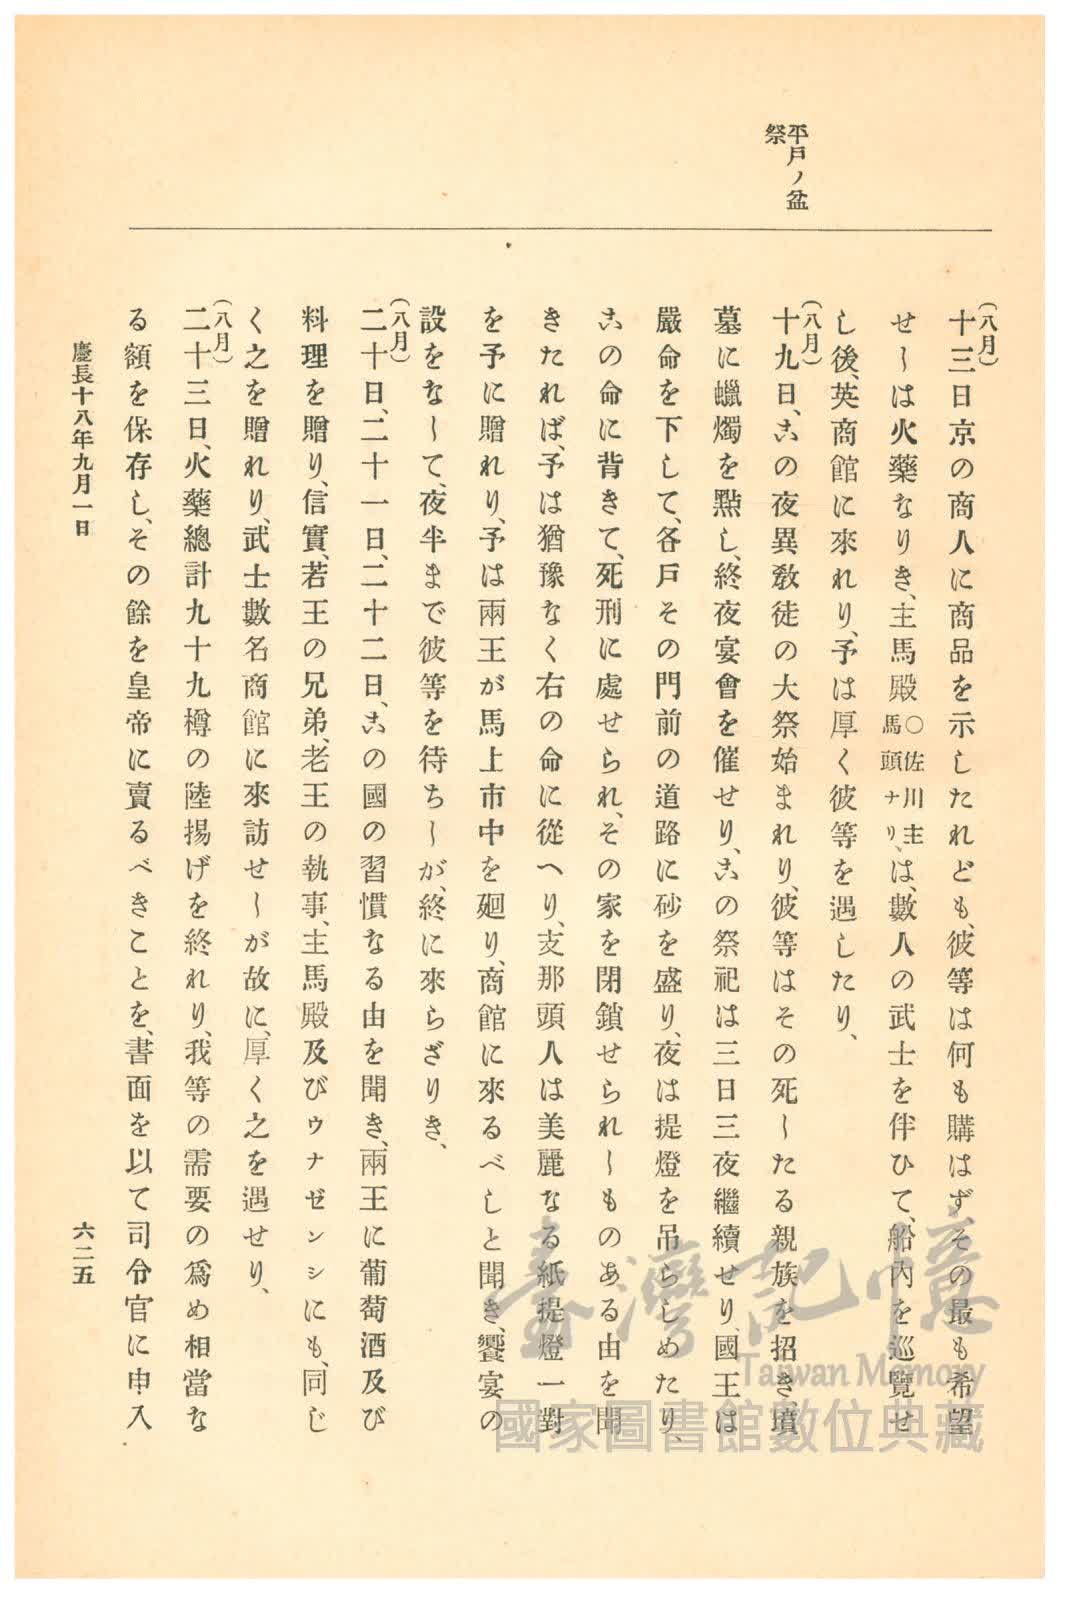 平戸ノ盆
祭
(八月)
十三日京の商人に商品を示したれども、彼等は何も購はず、その最も希望
せしは火藥なりき、主馬殿○佐川主馬頭ナリ、は、數人の武士を伴ひて、船内を巡覽せ
し後、英商館に來れり、予は厚く彼等を遇したり、
(八月)
十九日、この夜異敎徒の大祭始まれり、彼等はその死したる親族を招き、墳
墓に蠟燭を點し、終夜宴會を催せり、この祭祀は三日三夜繼續せり、國王は
嚴命を下して、各戸その門前の道路に砂を盛り、夜は提燈を吊らしめたり、
この命に背きて、死刑に處せられ、その家を閉鎖せられしものある由を聞
きたれば、予は猶豫なく右の命に從へり、支那頭人は美麗なる紙提燈一對
を予に贈れり、予は兩王が馬上市中を廻り、商館に來るべしと聞き、饗宴の
設をなして、夜半まで彼等を待ちしが、終に來らざりき、
(八月)
二十日、二十一日、二十二日、この國の習慣なる由を聞き、兩王に葡萄酒及び
料理を贈り、信實、若王の兄弟、老王の執事、主馬殿及びウナゼンシにも、同じ
く之を贈れり、武士數名商館に來訪せしが故に、厚く之を遇せり、
(八月)
二十三日、火藥總計九十九樽の陸揚げを終れり、我等の需要の爲め相當な
る額を保存し、その餘を皇帝に賣るべきことを、書面を以て司令官に申入
慶長十八年九月一日
六二五
臺灣記憶
Taiwan Memory
國家圖書館數位典藏